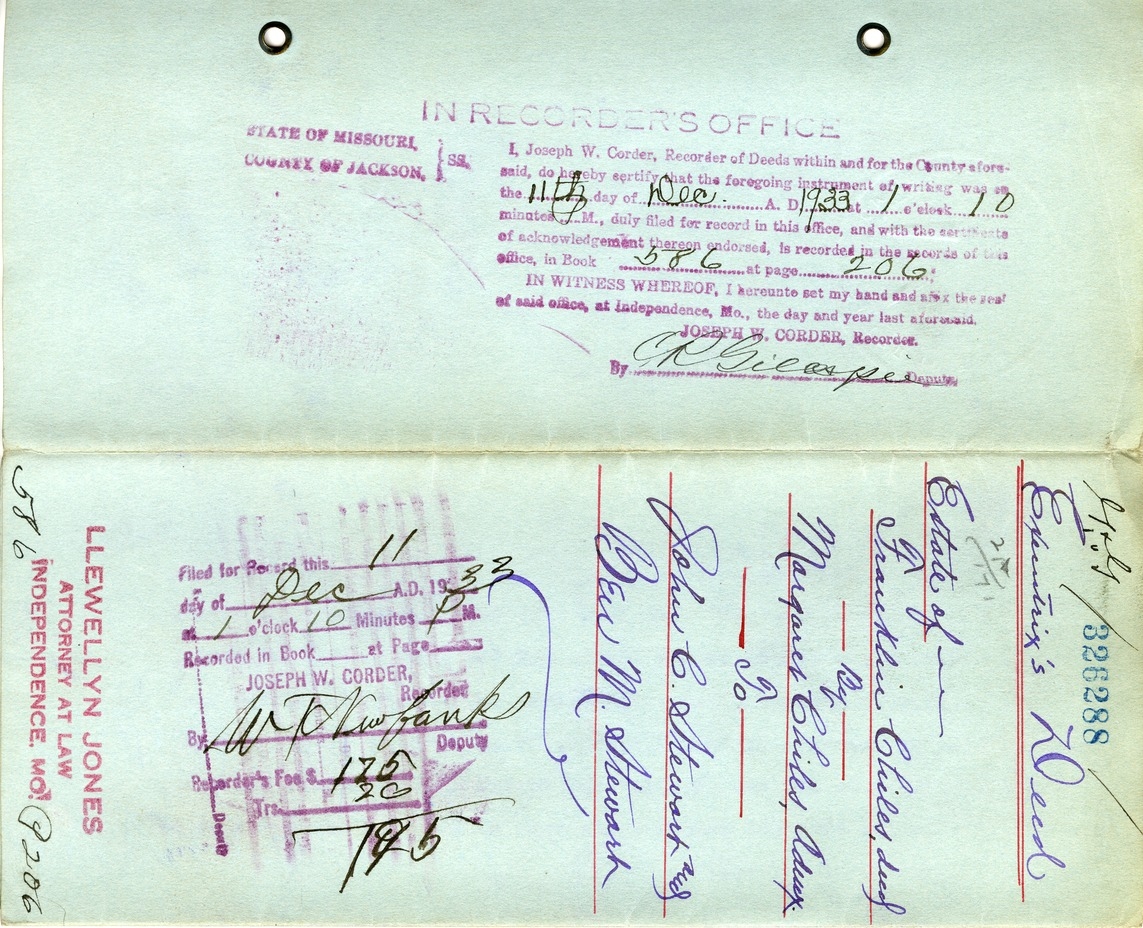 IN RECORDER'S OFFICE
STATE OF MISSOURI,
COUNTY OF JACKSON,
SS.
I, Joseph W. Corder, Recorder of Deeds within and for the County afore-
said, do hereby certify that the foregoing instrument of writing was on
the 11th day of Dec. A. D. 1933 at 1 o'clock 10
minutes M., duly filed for record in this office, and with the certificate
of acknowledgement thereon endorsed, is recorded in the records of this
office, in Book 586 at page 206.
IN WITNESS WHEREOF, I hereunto set my hand and affix the seal
of said office, at Independence, Mo., the day and year last aforesaid.
JOSEPH W. CORDER, Recorder.
By C R Gillespie Deputy
326288
Deed
Estate of
Franklin Chiles, decd
By
Margaret Chiles, Admx.
To
John C. Stewart and
Ben M. Stewart
Filed for Record this 11
day of Dec A.D. 1933
at 1 o'clock 10 Minutes P M.
Recorded in Book at Page
JOSEPH W. CORDER,
Recorder
By Deputy
Recorder's Fee $ 175
Trs. 20
195
Deputy
LLEWELLYN JONES
ATTORNEY AT LAW
INDEPENDENCE, MO.
586 P 206